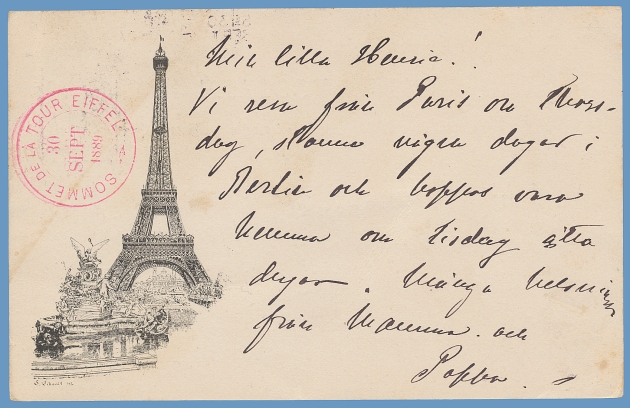 SOMMET DE LA TOUR EIFFEL
30
SEPT
1889
Min lilla Henric!
Vi resa från Paris om Thors-
dag, stanna några dagar i
Berlin och hoppas vara
hemma om tisdag åtta
dagar. Många helsningar
från Mamma och
Pappa.